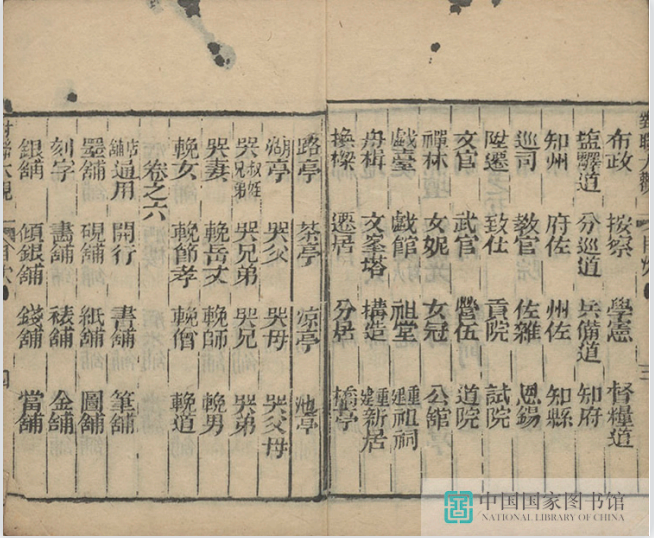 對聯大觀 目次 三
布政 按察 學憲 督糧道
鹽驛道 分巡道 兵備道 知府
知州 府佐 州佐 知縣
巡司 教官 佐雜 恩錫
陞遷 致仕 貢院 試院
文官 武官 營伍 道院
禪林 女妮 女冠 公舘
戲臺 戲館 祖堂 建祖祠
舟楫 文峯塔 構造 建新居
換樑 遷居 分居 橋亭
路亭 茶亭 凉亭 池亭
湖亭 哭父 哭母 哭父母
哭叔姪兄弟 哭兄弟 哭兄 哭弟
哭妻 輓岳丈 輓師 輓男
輓女 輓節孝 輓僧 輓道
卷之六
店舖通用 開行 書舖 筆舖
墨舖 硯舖 紙舖 圖舖
刻字 書舖 裱舖 金舖
銀舖 傾銀舖 錢舖 當舖
對聯大觀 目次 四
中国国家图书馆
NATIONAL LIBRARY OF CHINA